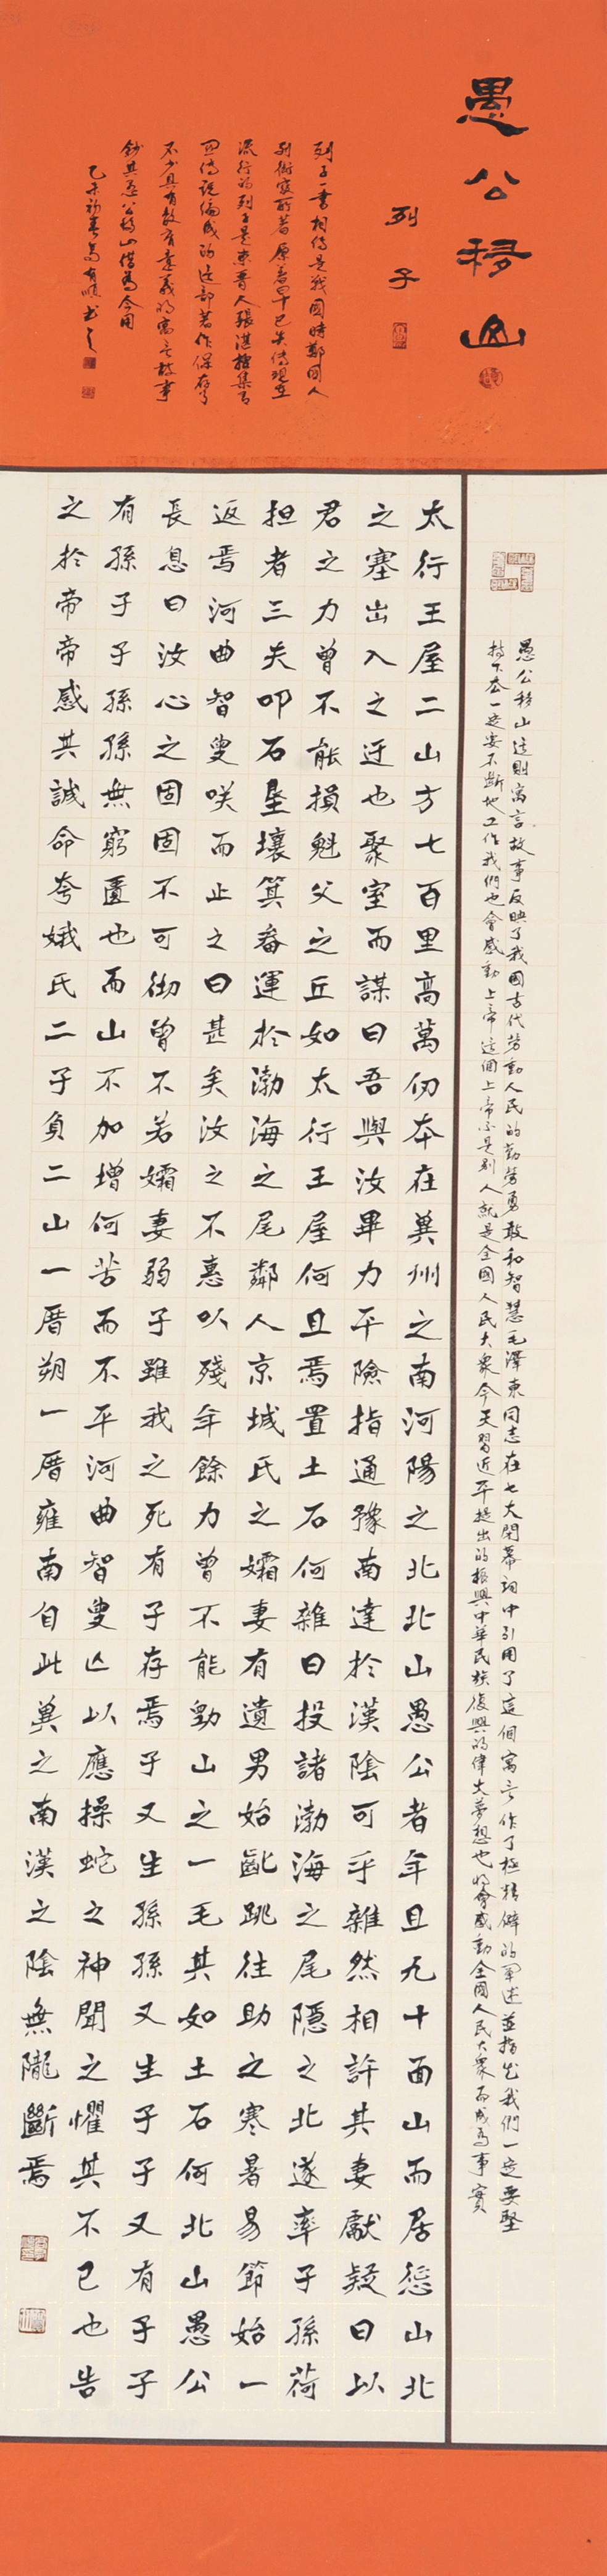 愚公移山
列子
列子一書相傳是戰國時鄭國人
列禦寇所著原著早已失傳現在
流行的列子是東晉人張湛搜集有
關傳說編成的這部著作保存了
不少具有教育意義的寓言故事
鈔其愚公移山借為今用
乙未初春高有順書之
愚公移山這則寓言故事反映了我國古代勞動人民的勤勞勇敢和智慧毛澤東同志在七大閉幕詞中引用了這個寓言作了極精僻的闡述並指出我們一定要堅
持下去一定要不斷地工作我們也會感動上帝這個上帝不是別人就是全國人民大眾今天習近平提出的振興中華民族復興的偉大夢想也將會感動全國人民大眾而成為事實
太行王屋二山方七百里高萬仞本在冀州之南河陽之北北山愚公者年且九十面山而居懲山北
之塞出入之迂也聚室而謀曰吾與汝畢力平險指通豫南達於漢陰可乎雜然相許其妻獻疑曰以
君之力曾不能損魁父之丘如太行王屋何且焉置土石何雜曰投諸渤海之尾隱之北遂率子孫荷
担者三夫叩石墾壤箕畚運於渤海之尾鄰人京城氏之孀妻有遺男始齔跳往助之寒暑易節始一
返焉河曲智叟咲而止之曰甚矣汝之不惠以殘年餘力曾不能動山之一毛其如土石何北山愚公
長息曰汝心之固固不可徹曾不若孀妻弱子雖我之死有子存焉子又生孫孫又生子子又有子子
有孫子子孫孫無窮匱也而山不加增何苦而不平河曲智叟亡以應操蛇之神聞之懼其不已也告
之於帝帝感其誠命夸娥氏二子負二山一厝朔一厝雍南自此冀之南漢之陰無隴斷焉